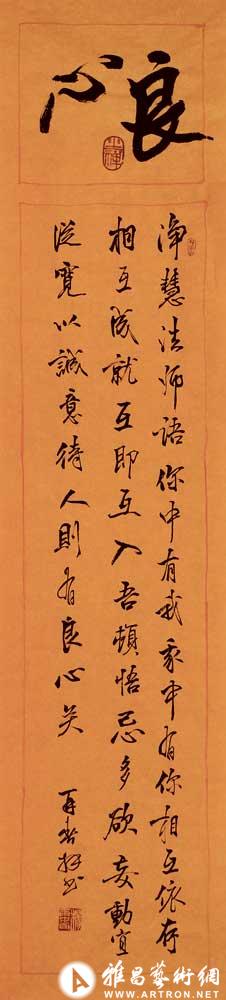 良心
净慧法师语你中有我我中有你相互依存
相互成就互即互入吾顿悟忌多欲妄動宜
從寛以誠意待人則有良心矣
雅昌藝術網
WWW.ARTRON.NET